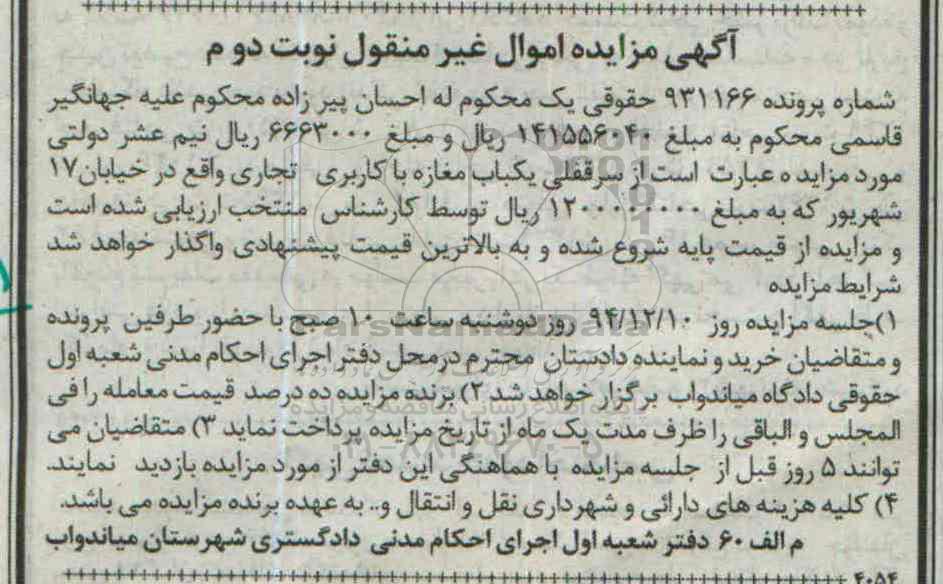 آگهی مزایده اموال غیر منقول نوبت دوم
شماره پرونده ۹۳۱۱۶۶ حقوقی یک محکوم له احسان پیر زاده محکوم علیه جهانگیر
قاسمی محکوم به مبلغ ۱۴۱۵۵۶۰۴۰ ریال و مبلغ ۶۶۶۳۰۰۰ ریال نیم عشر دولتی
مورد مزایده عبارت است از سرقفلی یکباب مغازه با کاربری تجاری واقع در خیابان ۱۷
شهریور که به مبلغ ۱۲۰۰۰۰۰۰۰۰ ریال توسط کارشناس منتخب ارزیابی شده است
و مزایده از قیمت پایه شروع شده و به بالاترین قیمت پیشنهادی واگذار خواهد شد
شرایط مزایده
۱)جلسه مزایده روز ۹۴/۱۲/۱۰ روز دوشنبه ساعت ۱۰ صبح با حضور طرفین پرونده
و متقاضیان خرید و نماینده دادستان محترم در محل دفتر اجرای احکام مدنی شعبه اول
حقوقی دادگاه میاندواب برگزار خواهد شد ۲) برنده مزایده ده درصد قیمت معامله را فی
المجلس و الباقی را ظرف مدت یک ماه از تاریخ مزایده پرداخت نماید ۳) متقاضیان می
توانند ۵ روز قبل از جلسه مزایده با هماهنگی این دفتر از مورد مزایده بازدید نمایند.
۴) کلیه هزینه های دارائی و شهرداری نقل و انتقال و.. به عهده برنده مزایده می باشد.
م الف ۶۰ دفتر شعبه اول اجرای احکام مدنی دادگستری شهرستان میاندواب
۴۰۵۴
ParsNamadData